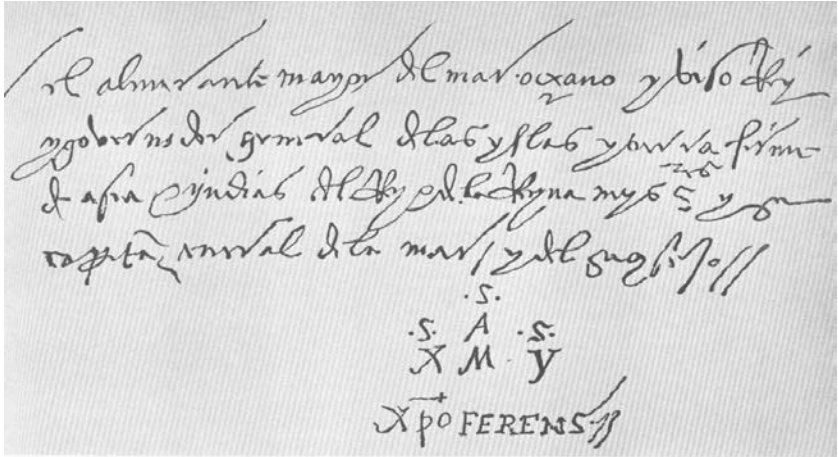 el almirante mayor del mar oçeano y viso Rey
y governador general de las yslas y tierra firme
de asia e yndias del Rey e de la Reyna mys S.res y su
capitan general de la mar y del su consejo //
.S.
.S. A .S.
X M y
Xpo FERENS.//